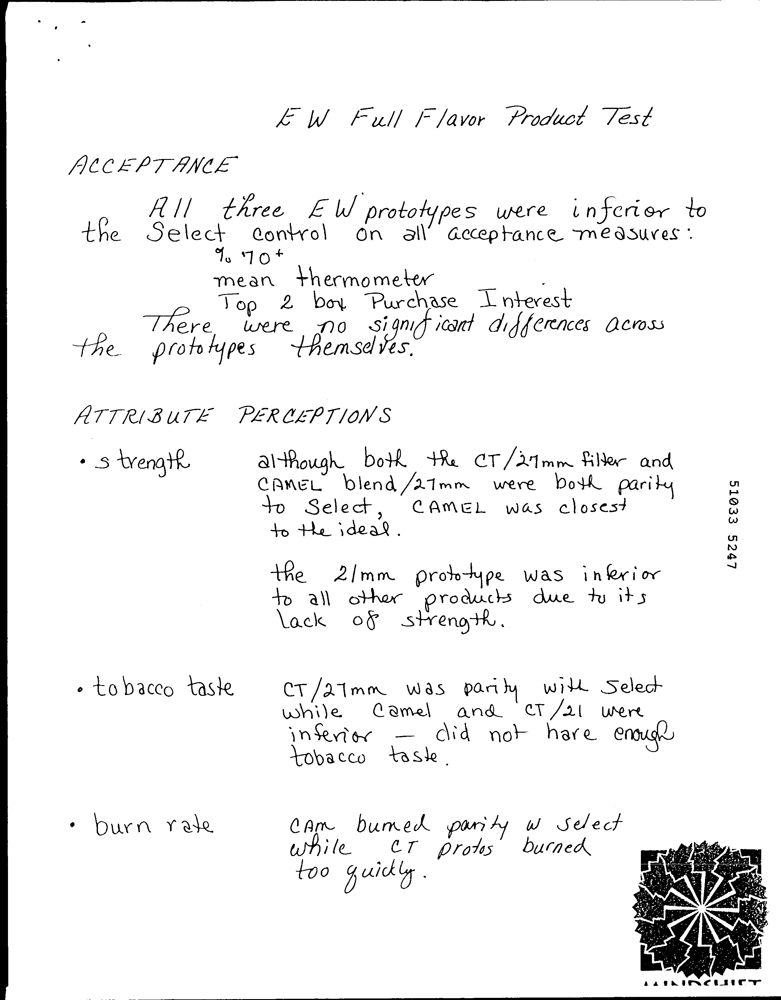 EW Full Flavor Product Test
ACCEPTANCE
All three EW prototypes were inferior to
the Select control on all acceptance measures:
% 70+
mean thermometer
Top 2 box Purchase Interest
There were no significant differences across
the prototypes themselves.
ATTRIBUTE PERCEPTIONS
• strength although both the CT/27mm filter and
CAMEL blend/27mm were both parity
to Select, CAMEL was closest
to the ideal.
the 21mm prototype was inferior
to all other products due to its
lack of strength.
• tobacco taste CT/27mm was parity with Select
while Camel and CT/21 were
inferior — did not have enough
tobacco taste.
• burn rate CAM burned parity w select
while CT protos burned
too quickly.
51033 5247
MINDSHIFT